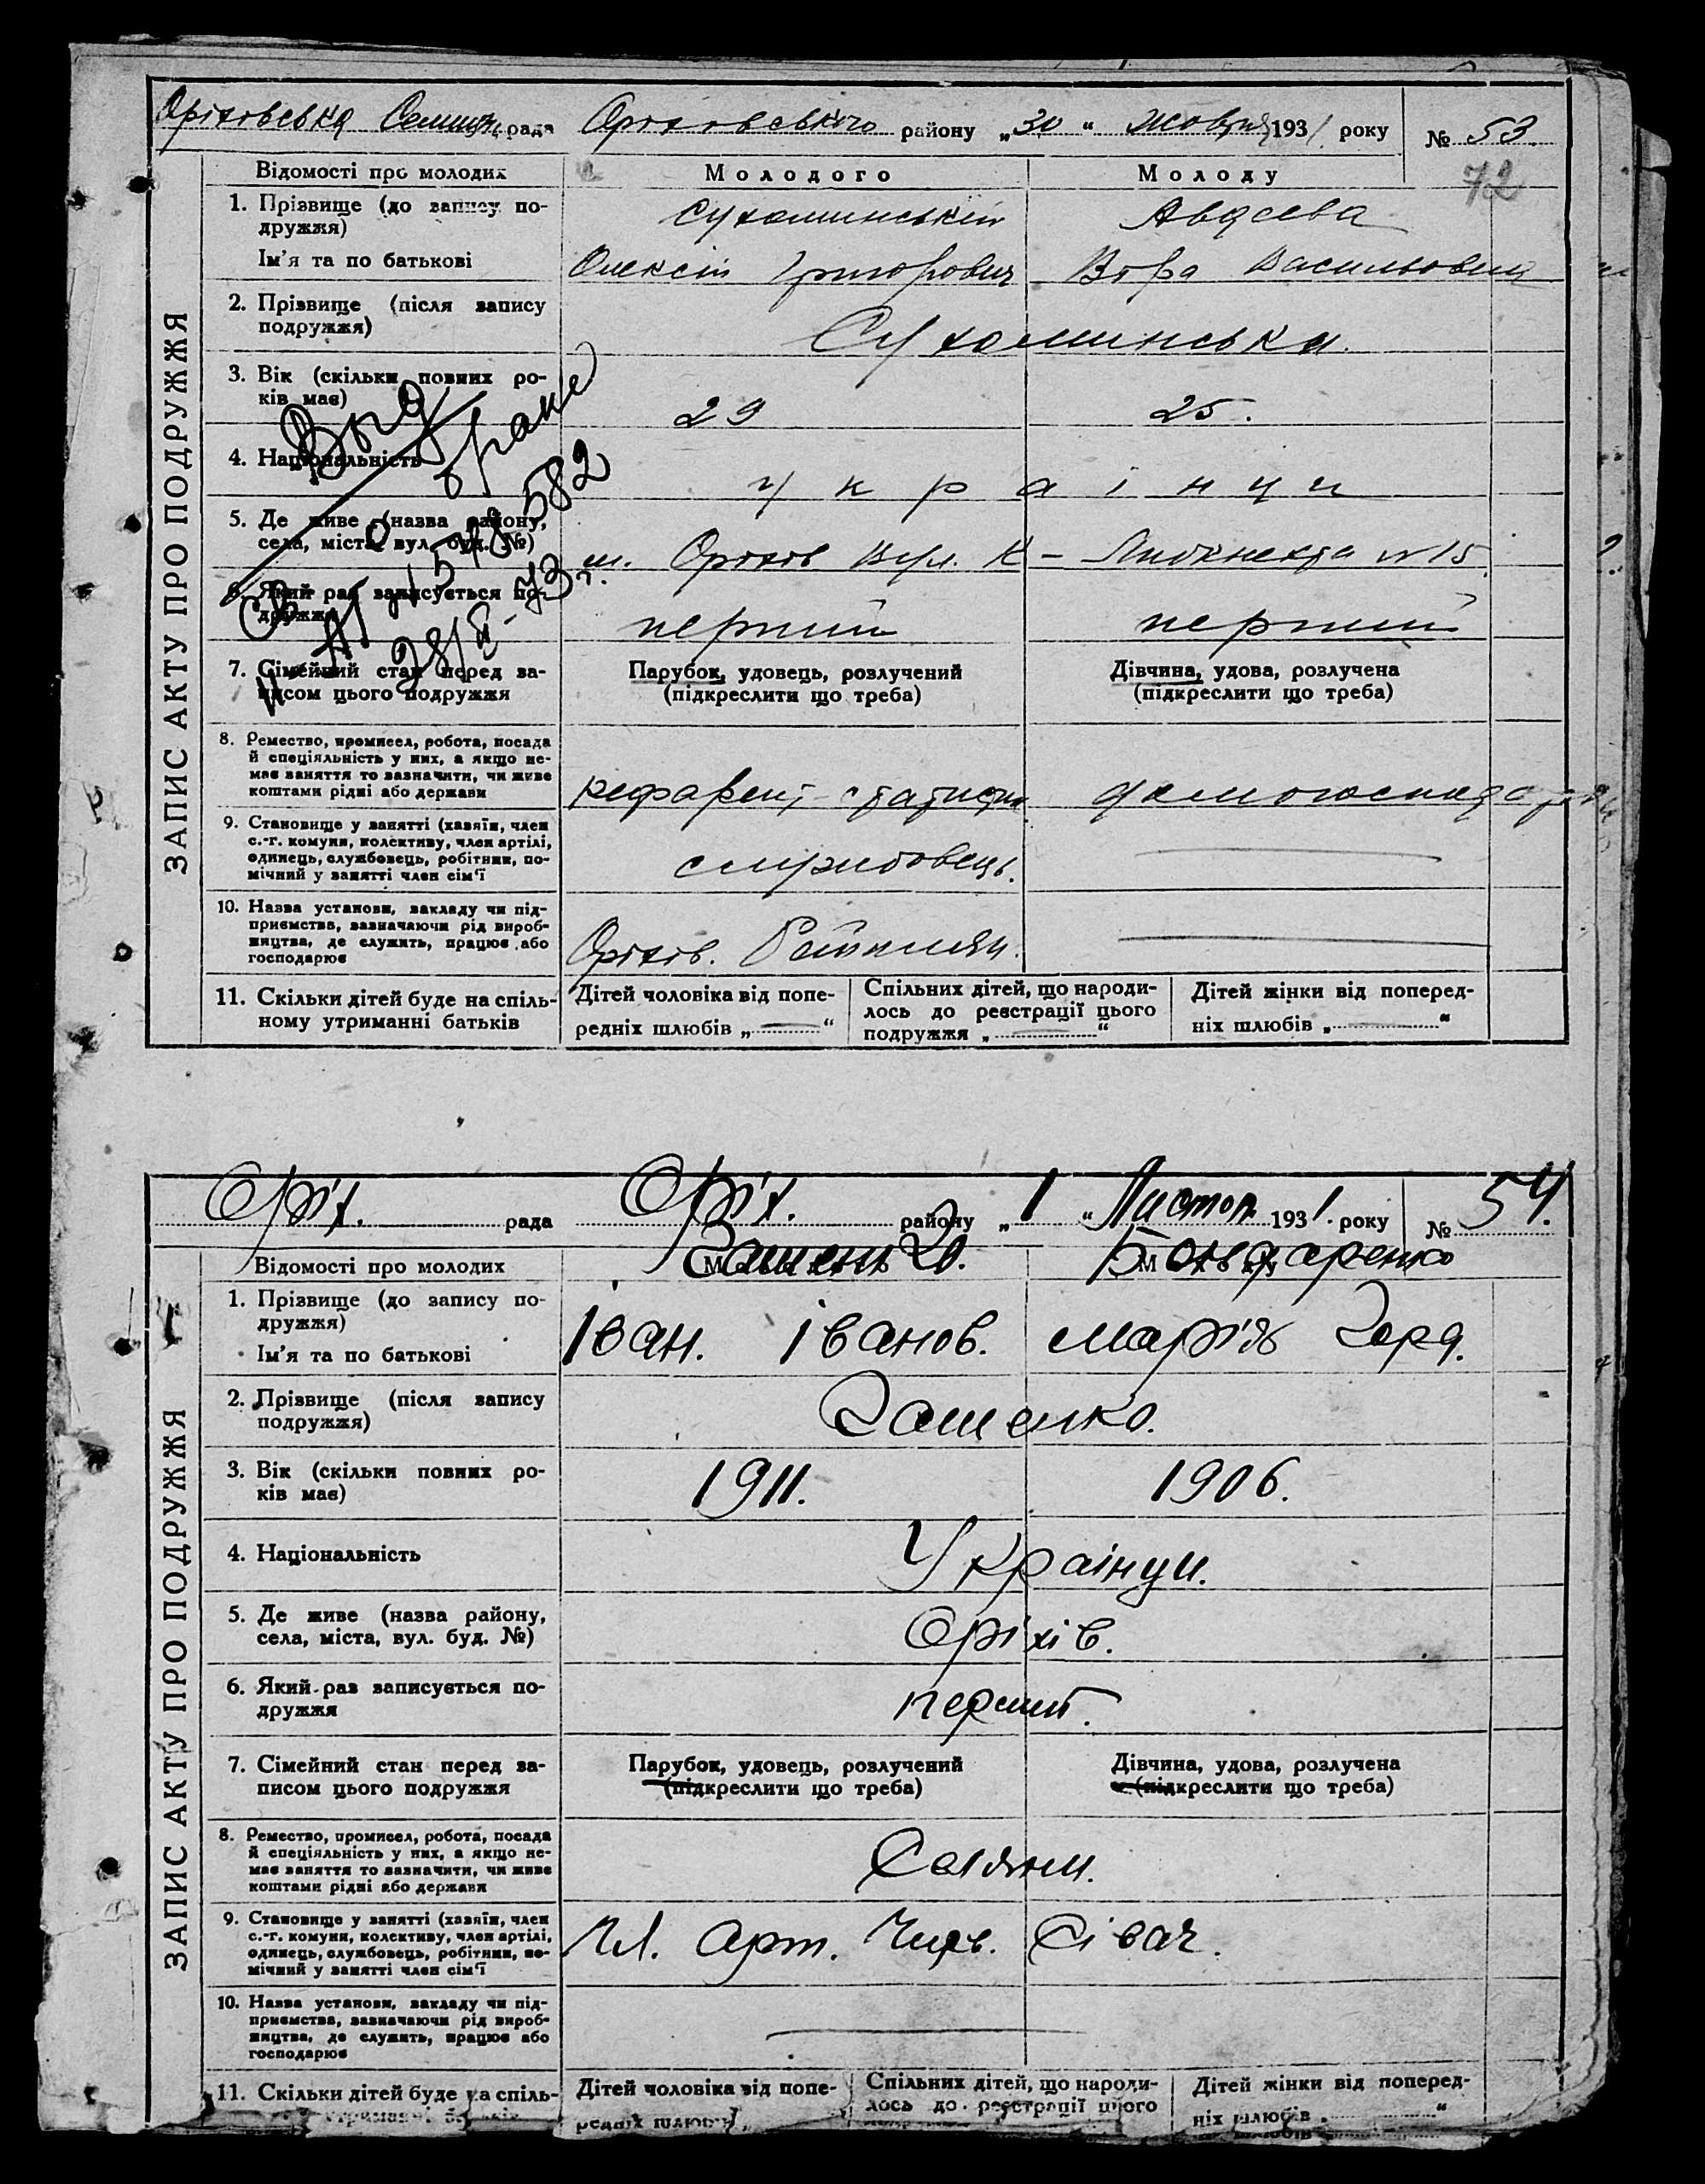 Оріховська Селищн. рада Оріховського району „30“ жовтня 1931 року № 53
72
Відомості про молодих Молодого Молоду
1. Прізвище (до запису по- Сухоминський Авдєєва
дружжя)
Ім'я та по батькові Олексій Григорович Віра Васильовна
2. Прізвище (після запису
подружжя) Сухоминська
3. Вік (скільки повних ро-
ків має) 29 25.
4. Національність українци
5. Де живе (назва району,
села, міста, вул. буд. №) м. Оріхів вул. К-Лібкнехта № 15
6. Який раз записується по-
дружжя перший перший
7. Сімейний стан перед за- Парубок, удовець, розлучений Дівчина, удова, розлучена
писом цього подружжя (підкреслити що треба) (підкреслити що треба)
8. Ремество, промисел, робота, посада
й спеціяльність у них, а якщо не-
має заняття то зазначити, чи живе
коштами рідні або держави референт-статистик домогосподарка
9. Становище у занятті (хазяїн, член
с.-г. комуни, колективу, член артілі,
одинець, службовець, робітник, по-
мічний у занятті член сім'ї службовець.
10. Назва установи, закладу чи під-
приємства, зазначаючи рід вироб-
ництва, де служить, працює або
господарює Оріхів.
11. Скільки дітей буде на спіль- Дітей чоловіка від попе- Спільних дітей, що народи- Дітей жінки від поперед-
ному утриманні батьків редніх шлюбів „ “ лось до реєстрації цього ніх шлюбів „ “
подружжя „ “
ЗАПИС АКТУ ПРО ПОДРУЖЖЯ
Выд
о браке
578582
Оріх. рада Оріх. району „1“ Листоп. 1931. року № 54.
Відомості про молодих Бондаренко
1. Прізвище (до запису по-
дружжя)
Ім'я та по батькові Іван. Іванов. Марія
2. Прізвище (після запису
подружжя) Зашенко.
3. Вік (скільки повних ро-
ків має) 1911. 1906.
4. Національність Українци.
5. Де живе (назва району,
села, міста, вул. буд. №) Оріхів.
6. Який раз записується по-
дружжя перший.
7. Сімейний стан перед за- Парубок, удовець, розлучений Дівчина, удова, розлучена
писом цього подружжя (підкреслити що треба) (підкреслити що треба)
8. Ремество, промисел, робота, посада
й спеціяльність у них, а якщо не-
має заняття то зазначити, чи живе
коштами рідні або держави Селяни.
9. Становище у занятті (хазяїн, член
с.-г. комуни, колективу, член артілі,
одинець, службовець, робітник, по-
мічний у занятті член сім'ї Чл. арт. Черв. Сівач.
10. Назва установи, закладу чи під-
приємства, зазначаючи рід вироб-
ництва, де служить, працює або
господарює
11. Скільки дітей буде на спіль- Дітей чоловіка від попе- Спільних дітей, що народи- Дітей жінки від поперед-
редніх шлюбів лось до реєстрації цього ніх шлюбів „ “
ЗАПИС АКТУ ПРО ПОДРУЖЖЯ